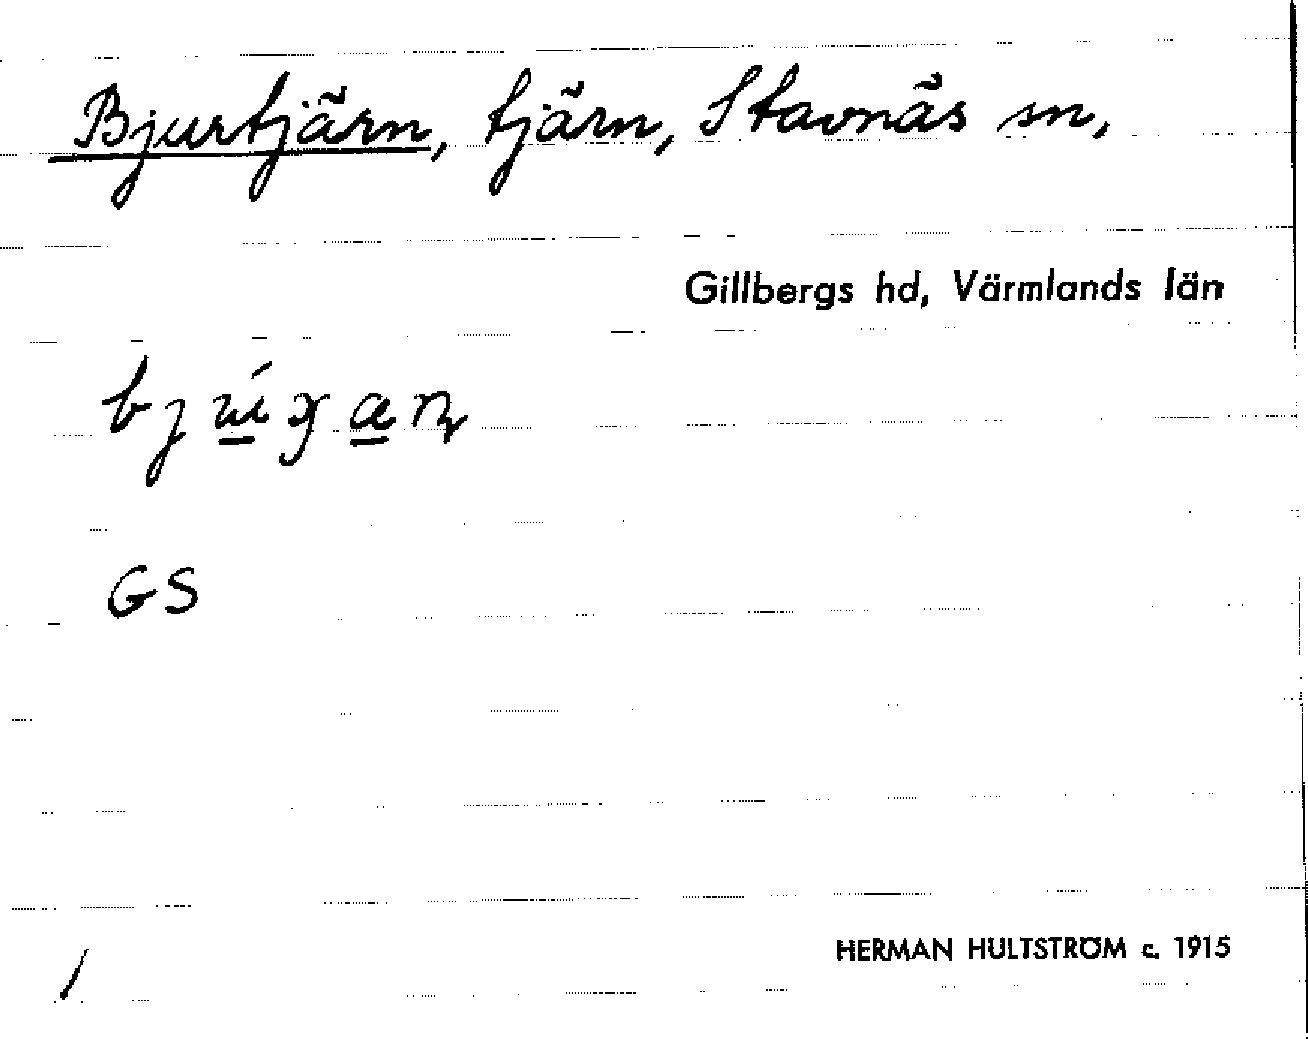 Bjurtjärn, tjärn, Stavnäs sn,
Gillbergs hd, Värmlands län
GS
HERMAN HULTSTRÖM c. 1915
/